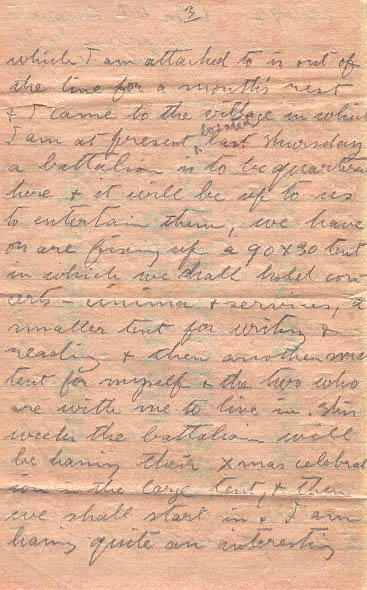 3
which I am attached to is out of
the line for a month's rest
& I came to the village in which
I am at present last Thursday
a battalion is to be quartered
here & it will be up to us
to entertain them, we have
or are fixing up a 90x30 tent
in which we shall hold con
certs - cinema & services, a
smaller tent for writing &
reading & then another small
tent for myself & the two who
are with me to live in. This
weeks the battalion will
be having their Xmas celebrat
ion in the large tent, & then
we shall start in. I am
having quite an interesting